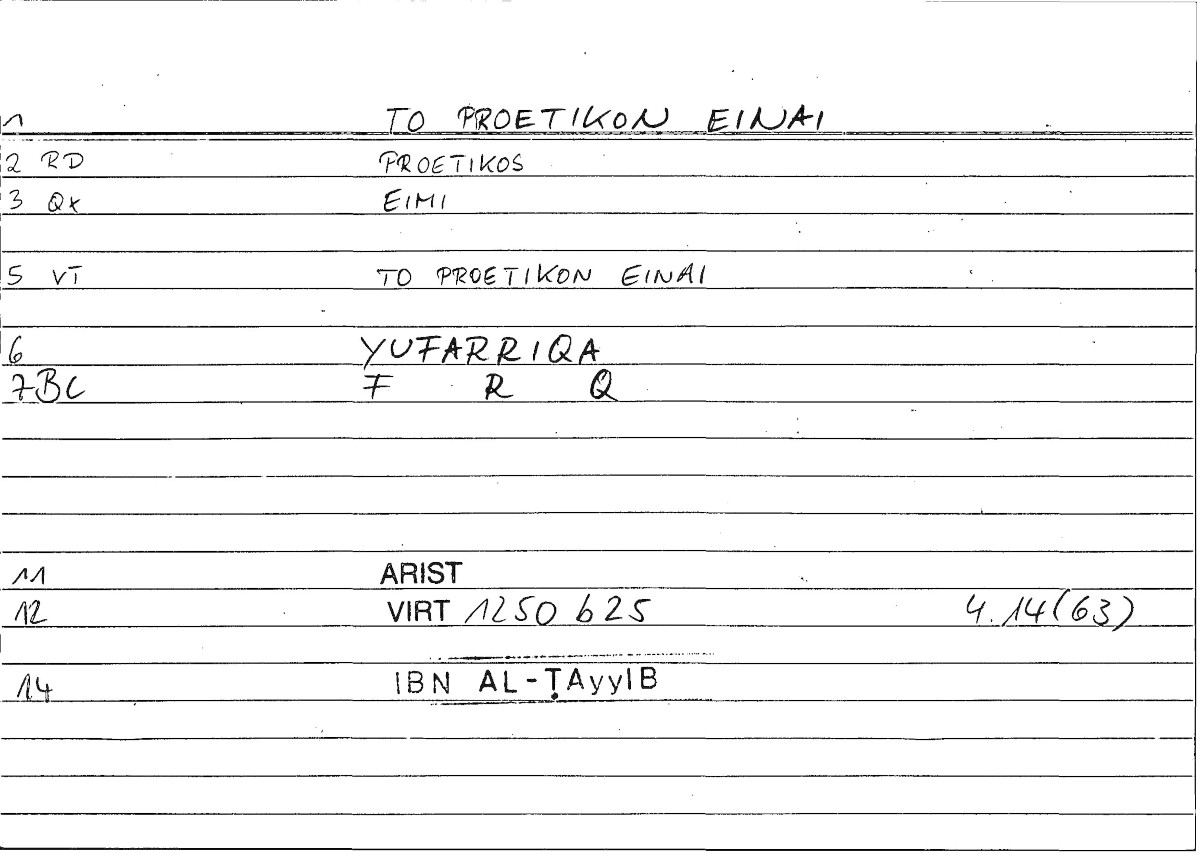 1 TO PROETIKON EINAI
2 RD PROETIKOS
3 Qx EIMI
5 VT TO PROETIKON EINAI
6 YUFARRIQA
7BC F R Q
11 ARIST
12 VIRT 1250 b25 4.14(63)
14 IBN AL-ṬAyyIB